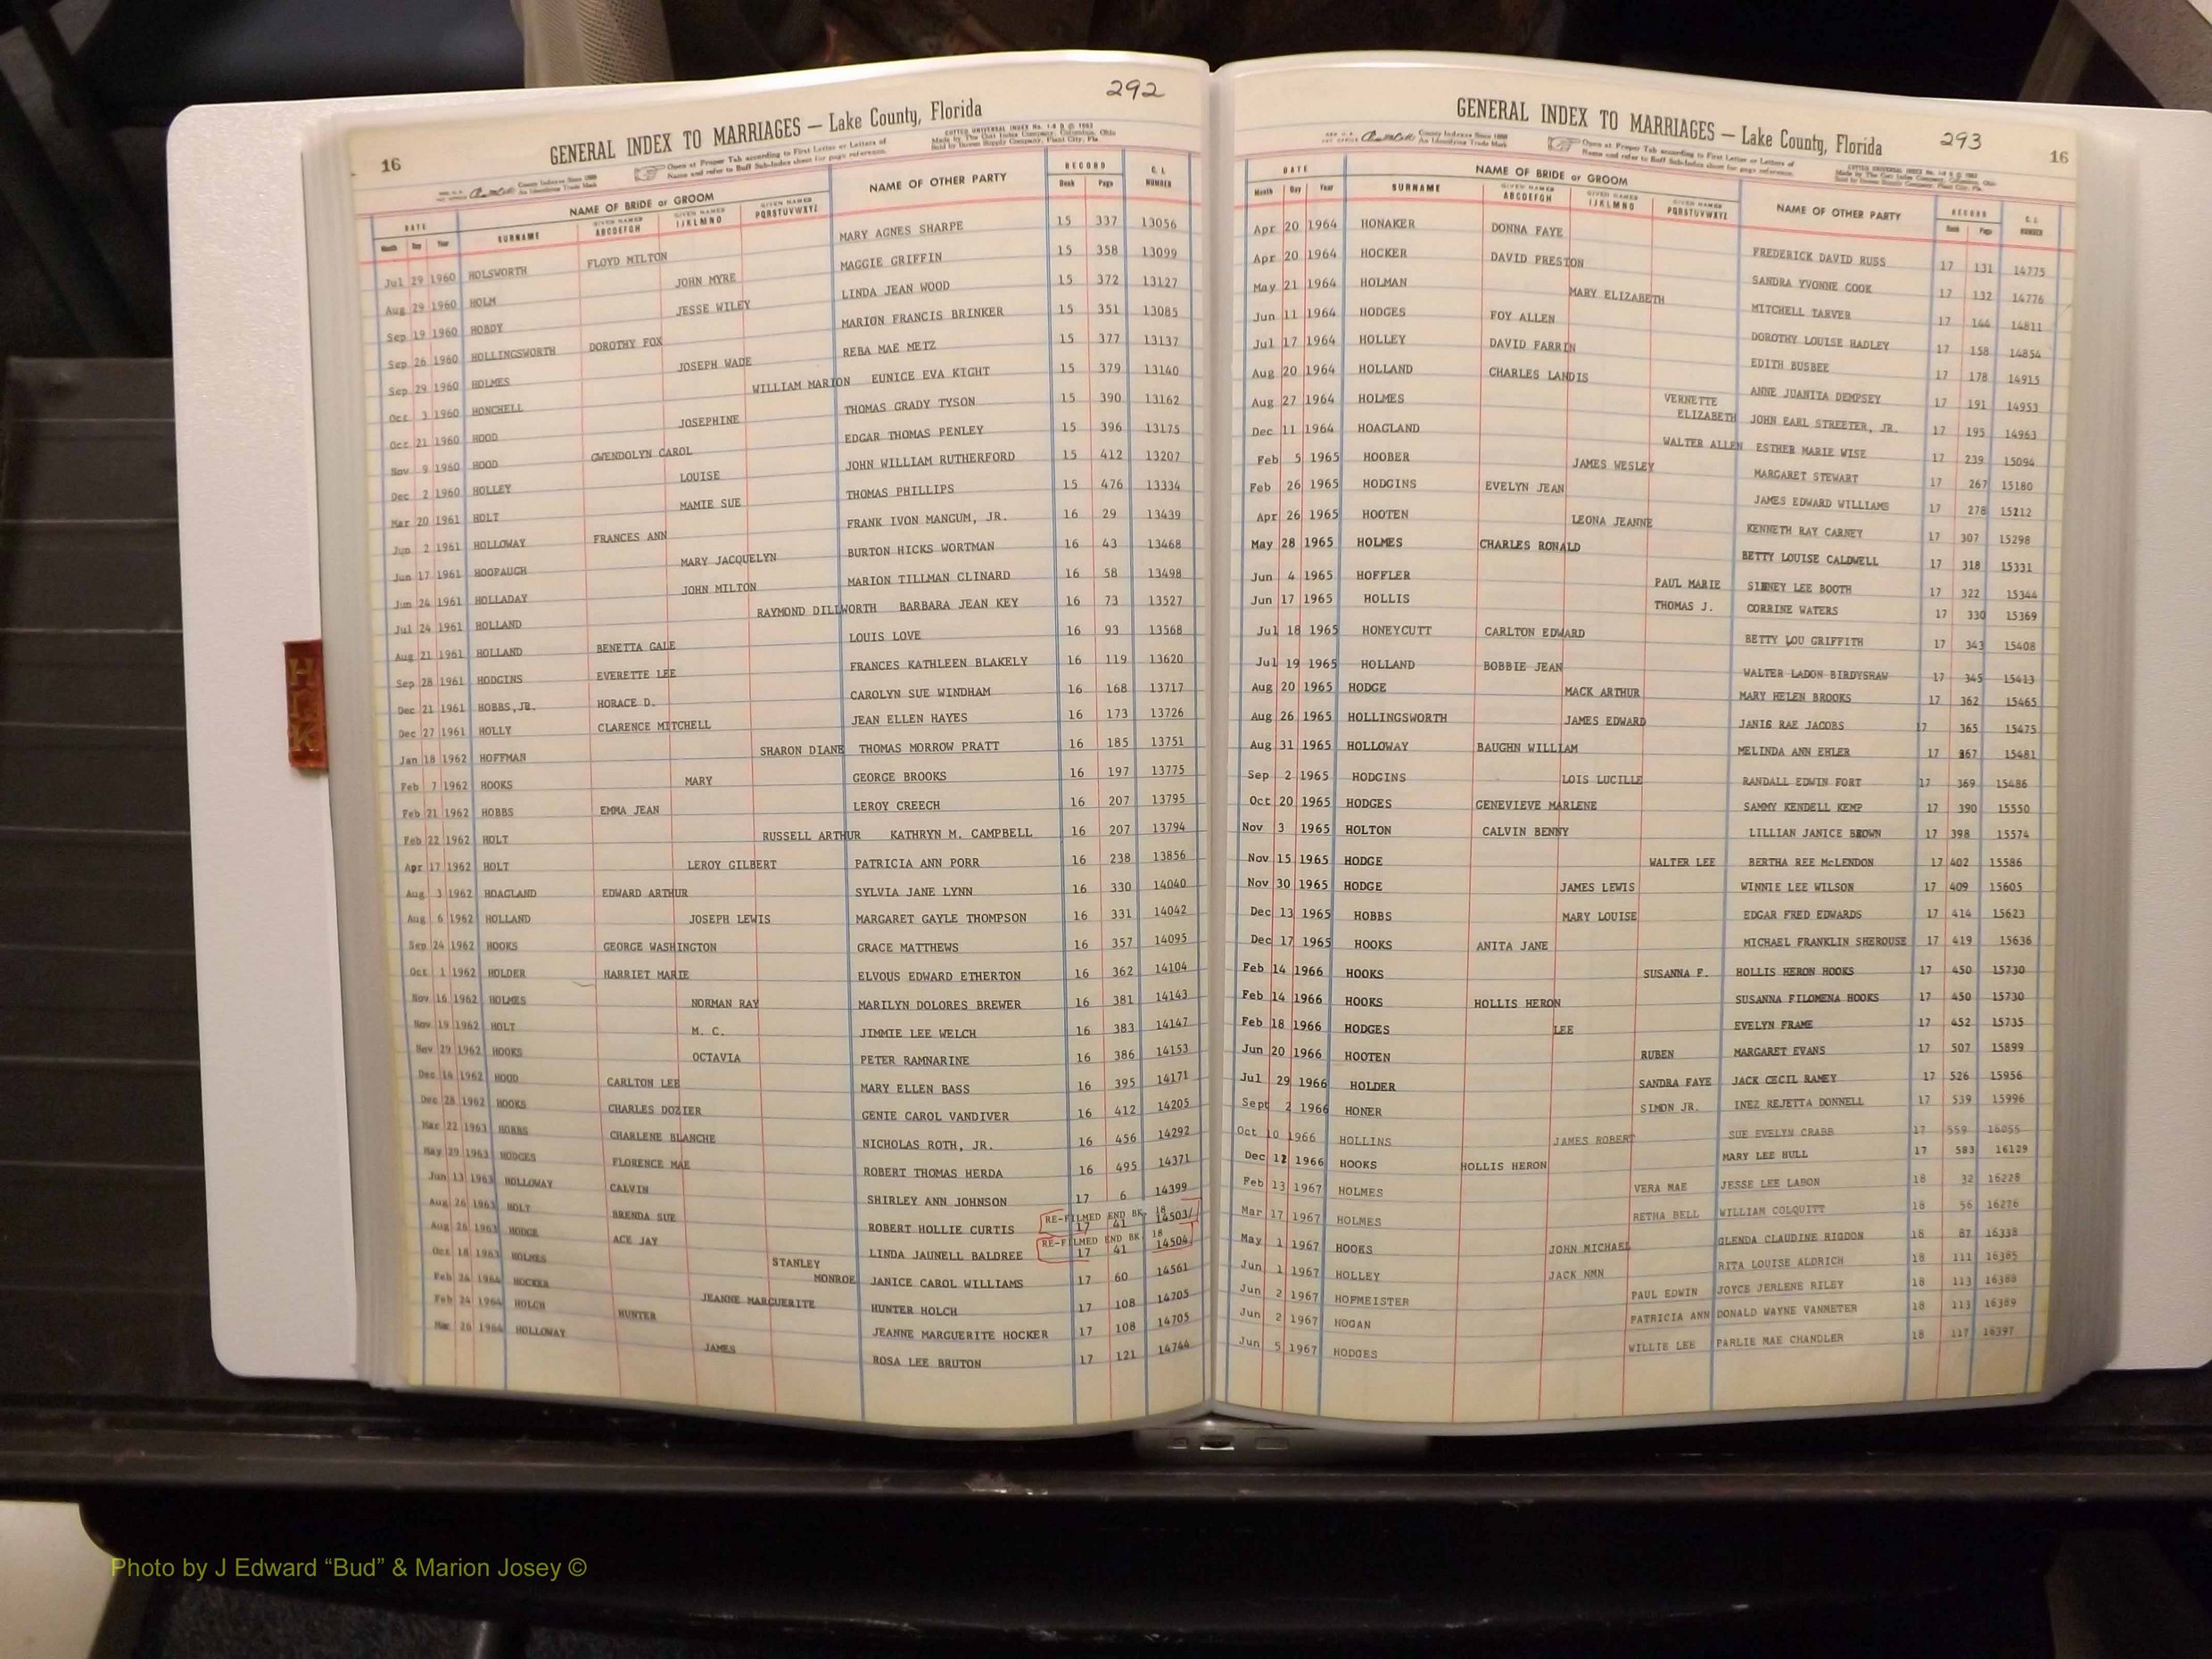 292
16
GENERAL INDEX TO MARRIAGES — Lake County, Florida
County Indexes Since 1888
An Identifying Trade Mark
Open at Proper Tab according to First Letter or Letters of
Name and refer to Buff Sub-Index sheet for page reference.
COTTED UNIVERSAL INDEX
Made by The Cott Index Company, Columbus, Ohio
Sold by Dower Supply Company, Plant City, Fla.
DATE NAME OF BRIDE or GROOM NAME OF OTHER PARTY RECORD C. I. NUMBER
Month Day Year SURNAME GIVEN NAMES ABCDEFGH GIVEN NAMES IJKLMNO GIVEN NAMES PQRSTUVWXYZ Book Page
Jul 29 1960 HOLSWORTH FLOYD MILTON MARY AGNES SHARPE 15 337 13056
Aug 29 1960 HOLM JOHN MYRE MAGGIE GRIFFIN 15 358 13099
Sep 19 1960 HOBDY JESSE WILEY LINDA JEAN WOOD 15 372 13127
Sep 26 1960 HOLLINGSWORTH DOROTHY FOX MARION FRANCIS BRINKER 15 351 13085
Sep 29 1960 HOLMES JOSEPH WADE REBA MAE METZ 15 377 13137
Oct 3 1960 HONCHELL WILLIAM MARION EUNICE EVA KIGHT 15 379 13140
Oct 21 1960 HOOD JOSEPHINE THOMAS GRADY TYSON 15 390 13162
Nov 9 1960 HOOD GWENDOLYN CAROL EDGAR THOMAS PENLEY 15 396 13175
Dec 2 1960 HOLLEY LOUISE JOHN WILLIAM RUTHERFORD 15 412 13207
Mar 20 1961 HOLT MAMIE SUE THOMAS PHILLIPS 15 476 13334
Jun 2 1961 HOLLOWAY FRANCES ANN FRANK IVON MANGUM, JR. 16 29 13439
Jun 17 1961 HOOPAUGH MARY JACQUELYN BURTON HICKS WORTMAN 16 43 13468
Jun 24 1961 HOLLADAY JOHN MILTON MARION TILLMAN CLINARD 16 58 13498
Jul 24 1961 HOLLAND RAYMOND DILLWORTH BARBARA JEAN KEY 16 73 13527
Aug 21 1961 HOLLAND BENETTA GALE LOUIS LOVE 16 93 13568
Sep 28 1961 HODGINS EVERETTE LEE FRANCES KATHLEEN BLAKELY 16 119 13620
Dec 21 1961 HOBBS, JR. HORACE D. CAROLYN SUE WINDHAM 16 168 13717
Dec 27 1961 HOLLY CLARENCE MITCHELL JEAN ELLEN HAYES 16 173 13726
Jan 18 1962 HOFFMAN SHARON DIANE THOMAS MORROW PRATT 16 185 13751
Feb 7 1962 HOOKS MARY GEORGE BROOKS 16 197 13775
Feb 21 1962 HOBBS EMMA JEAN LEROY CREECH 16 207 13795
Feb 22 1962 HOLT RUSSELL ARTHUR KATHRYN M. CAMPBELL 16 207 13794
Apr 17 1962 HOLT LEROY GILBERT PATRICIA ANN PORR 16 238 13856
Aug 3 1962 HOAGLAND EDWARD ARTHUR SYLVIA JANE LYNN 16 330 14040
Aug 6 1962 HOLLAND JOSEPH LEWIS MARGARET GAYLE THOMPSON 16 331 14042
Sep 24 1962 HOOKS GEORGE WASHINGTON GRACE MATTHEWS 16 357 14095
Oct 1 1962 HOLDER HARRIET MARIE ELVOUS EDWARD ETHERTON 16 362 14104
Nov 16 1962 HOLMES NORMAN RAY MARILYN DOLORES BREWER 16 381 14143
Nov 19 1962 HOLT M. C. JIMMIE LEE WELCH 16 383 14147
Nov 29 1962 HOOKS OCTAVIA PETER RAMNARINE 16 386 14153
Dec 14 1962 HOOD CARLTON LEE MARY ELLEN BASS 16 395 14171
Dec 28 1962 HOOKS CHARLES DOZIER GENIE CAROL VANDIVER 16 412 14205
Mar 22 1963 HOBBS CHARLENE BLANCHE NICHOLAS ROTH, JR. 16 456 14292
May 29 1963 HODGES FLORENCE MAE ROBERT THOMAS HERDA 16 495 14371
Jun 13 1963 HOLLOWAY CALVIN SHIRLEY ANN JOHNSON 17 6 14399
RE-FILMED END BK. 18
Aug 26 1963 HOLT BRENDA SUE ROBERT HOLLIE CURTIS 17 41 14503
RE-FILMED END BK 18
Aug 26 1963 HODGE ACE JAY LINDA JAUNELL BALDREE 17 41 14504
Oct 18 1963 HOLMES STANLEY MONROE JANICE CAROL WILLIAMS 17 60 14561
Feb 24 1964 HOCKER JEANNE MARGUERITE HUNTER HOLCH 17 108 14705
Feb 24 1964 HOLCH HUNTER JEANNE MARGUERITE HOCKER 17 108 14705
Mar 26 1964 HOLLOWAY JAMES ROSA LEE BRUTON 17 121 14744
293
16
GENERAL INDEX TO MARRIAGES — Lake County, Florida
County Indexes Since 1888
An Identifying Trade Mark
Open at Proper Tab according to First Letter or Letters of
Name and refer to Buff Sub-Index sheet for page reference.
COTTED UNIVERSAL INDEX
Made by The Cott Index Company, Columbus, Ohio
Sold by Dower Supply Company, Plant City, Fla.
DATE NAME OF BRIDE or GROOM NAME OF OTHER PARTY RECORD C. I. NUMBER
Month Day Year SURNAME GIVEN NAMES ABCDEFGH GIVEN NAMES IJKLMNO GIVEN NAMES PQRSTUVWXYZ Book Page
Apr 20 1964 HONAKER DONNA FAYE FREDERICK DAVID RUSS 17 131 14775
Apr 20 1964 HOCKER DAVID PRESTON SANDRA YVONNE COOK 17 132 14776
May 21 1964 HOLMAN MARY ELIZABETH MITCHELL TARVER 17 144 14811
Jun 11 1964 HODGES FOY ALLEN DOROTHY LOUISE HADLEY 17 158 14854
Jul 17 1964 HOLLEY DAVID FARRIN EDITH BUSBEE 17 178 14915
Aug 20 1964 HOLLAND CHARLES LANDIS ANNE JUANITA DEMPSEY 17 191 14953
Aug 27 1964 HOLMES VERNETTE ELIZABETH JOHN EARL STREETER, JR. 17 195 14963
Dec 11 1964 HOAGLAND WALTER ALLEN ESTHER MARIE WISE 17 239 15094
Feb 5 1965 HOOBER JAMES WESLEY MARGARET STEWART 17 267 15180
Feb 26 1965 HODGINS EVELYN JEAN JAMES EDWARD WILLIAMS 17 278 15212
Apr 26 1965 HOOTEN LEONA JEANNE KENNETH RAY CARNEY 17 307 15298
May 28 1965 HOLMES CHARLES RONALD BETTY LOUISE CALDWELL 17 318 15331
Jun 4 1965 HOFFLER PAUL MARIE SIDNEY LEE BOOTH 17 322 15344
Jun 17 1965 HOLLIS THOMAS J. CORRINE WATERS 17 330 15369
Jul 18 1965 HONEYCUTT CARLTON EDWARD BETTY LOU GRIFFITH 17 343 15408
Jul 19 1965 HOLLAND BOBBIE JEAN WALTER LADON BIRDYSHAW 17 345 15413
Aug 20 1965 HODGE MACK ARTHUR MARY HELEN BROOKS 17 362 15465
Aug 26 1965 HOLLINGSWORTH JAMES EDWARD JANIS RAE JACOBS 17 365 15475
Aug 31 1965 HOLLOWAY BAUGHN WILLIAM MELINDA ANN EHLER 17 367 15481
Sep 2 1965 HODGINS LOIS LUCILLE RANDALL EDWIN FORT 17 369 15486
Oct 20 1965 HODGES GENEVIEVE MARLENE SAMMY KENDELL KEMP 17 390 15550
Nov 3 1965 HOLTON CALVIN BENNY LILLIAN JANICE BROWN 17 398 15574
Nov 15 1965 HODGE WALTER LEE BERTHA REE McLENDON 17 402 15586
Nov 30 1965 HODGE JAMES LEWIS WINNIE LEE WILSON 17 409 15605
Dec 13 1965 HOBBS MARY LOUISE EDGAR FRED EDWARDS 17 414 15623
Dec 17 1965 HOOKS ANITA JANE MICHAEL FRANKLIN SHEROUSE 17 419 15636
Feb 14 1966 HOOKS SUSANNA F. HOLLIS HERON HOOKS 17 450 15730
Feb 14 1966 HOOKS HOLLIS HERON SUSANNA FILOMENA HOOKS 17 450 15730
Feb 18 1966 HODGES LEE EVELYN FRAME 17 452 15735
Jun 20 1966 HOOTEN RUBEN MARGARET EVANS 17 507 15899
Jul 29 1966 HOLDER SANDRA FAYE JACK CECIL RAMEY 17 526 15956
Sept 2 1966 HONER SIMON JR. INEZ REJETTA DONNELL 17 539 15996
Oct 10 1966 HOLLINS JAMES ROBERT SUE EVELYN CRABB 17 559 16055
Dec 12 1966 HOOKS HOLLIS HERON MARY LEE HULL 17 583 16129
Feb 13 1967 HOLMES VERA MAE JESSE LEE LABON 18 32 16228
Mar 17 1967 HOLMES RETHA BELL WILLIAM COLQUITT 18 56 16276
May 1 1967 HOOKS JOHN MICHAEL GLENDA CLAUDINE RIGDON 18 87 16338
Jun 1 1967 HOLLEY JACK NMN RITA LOUISE ALDRICH 18 111 16385
Jun 2 1967 HOFMEISTER PAUL EDWIN JOYCE JERLENE RILEY 18 113 16388
Jun 2 1967 HOGAN PATRICIA ANN DONALD WAYNE VANMETER 18 113 16389
Jun 5 1967 HODGES WILLIE LEE PARLIE MAE CHANDLER 18 117 16397
Photo by J Edward “Bud” & Marion Josey ©